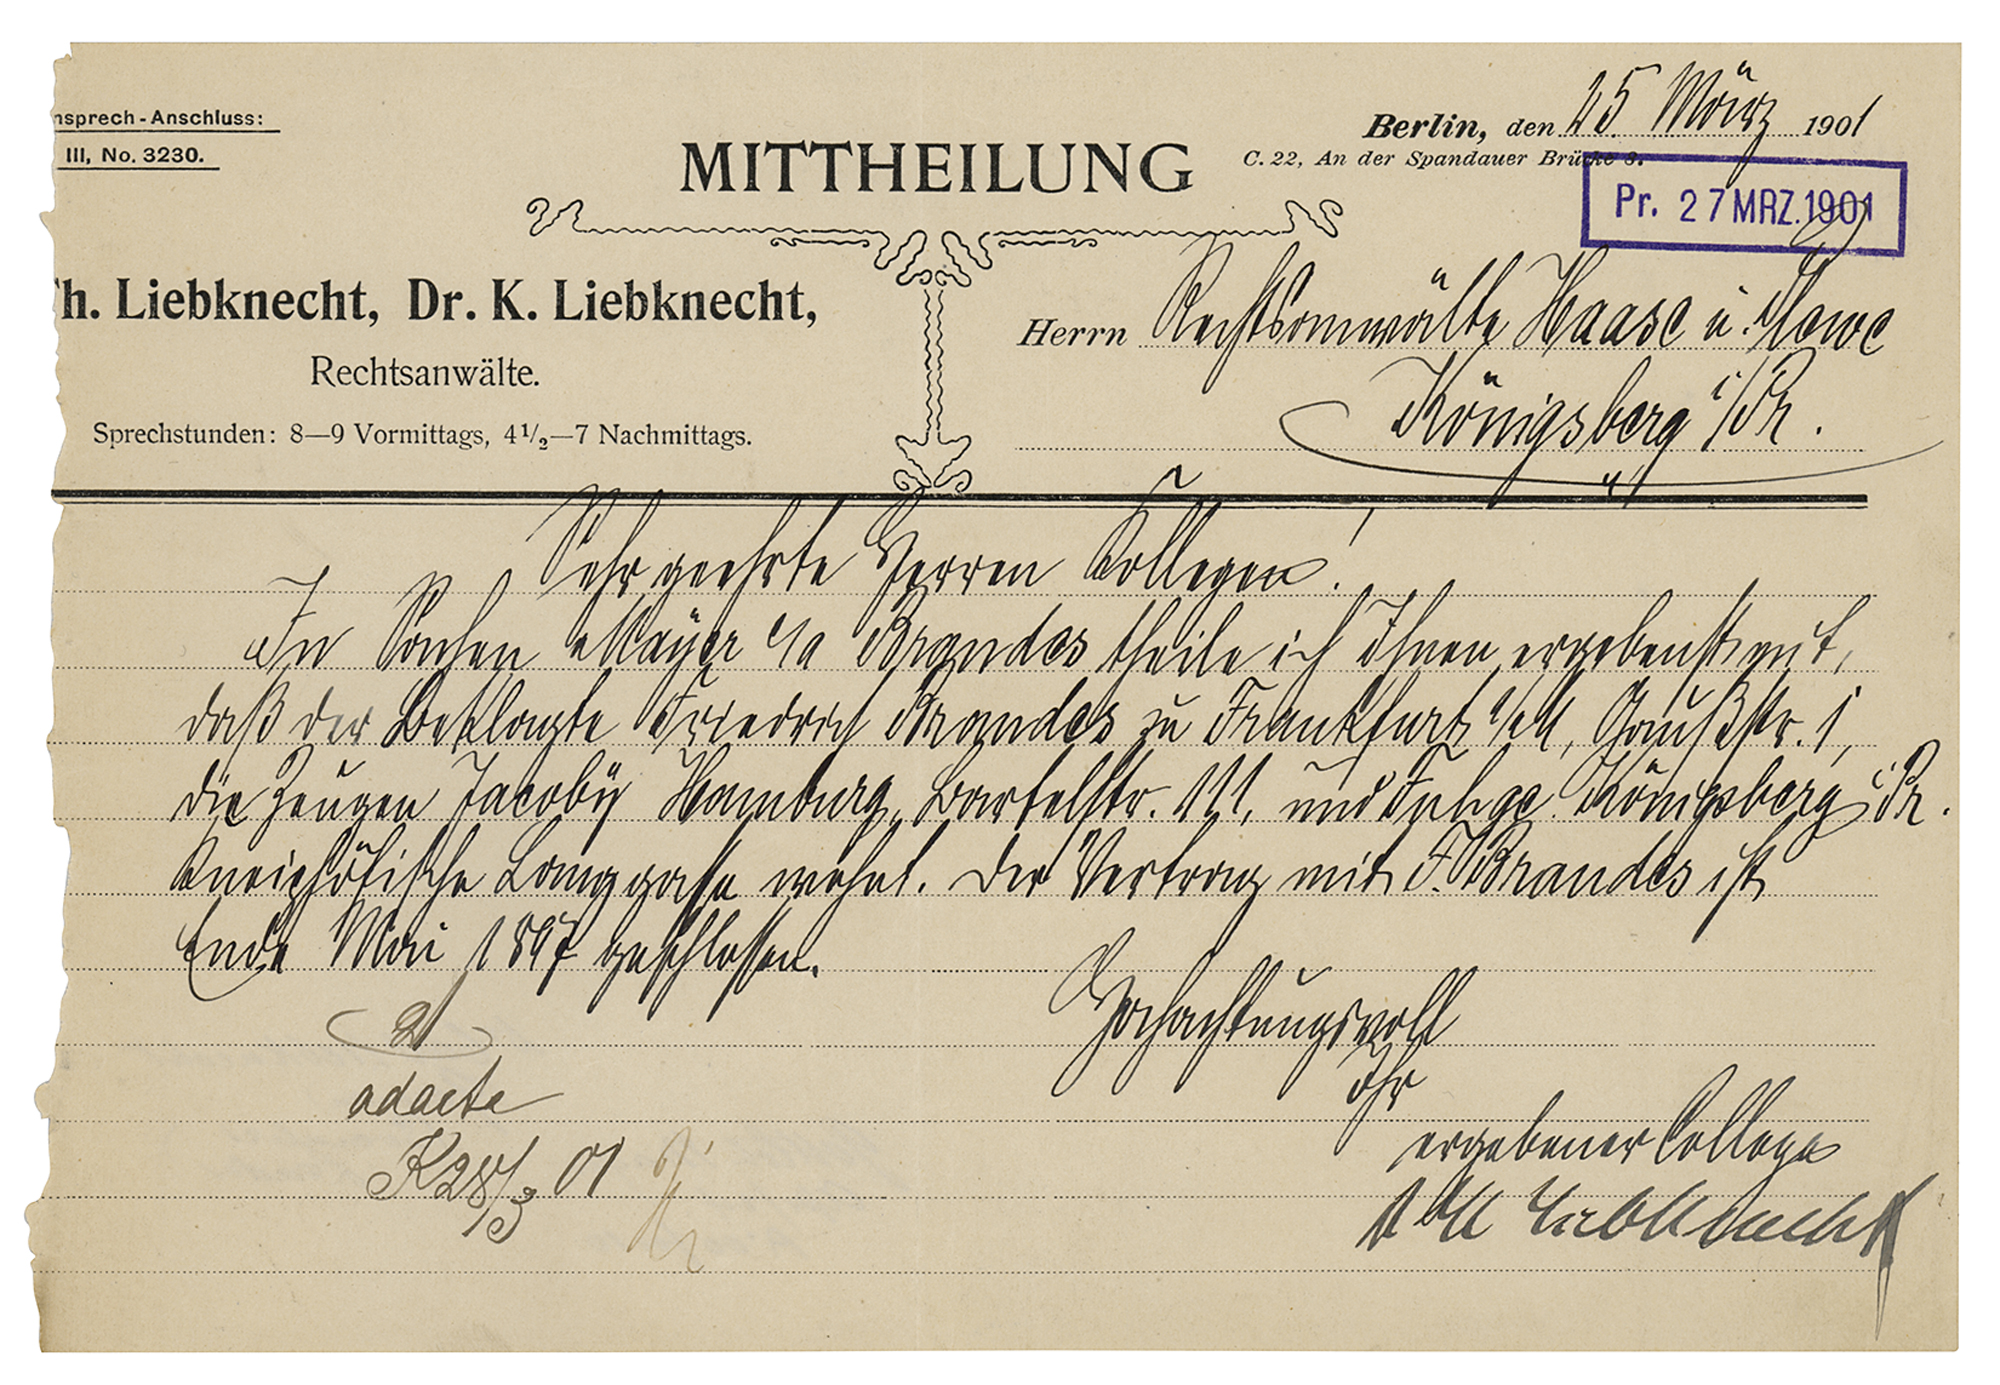 nsprech-Anschluss:
III, No. 3230.
MITTHEILUNG
Berlin, den 25. März 1901
C. 22, An der Spandauer Brücke 8.
Pr. 27 MRZ. 1901
Th. Liebknecht, Dr. K. Liebknecht,
Rechtsanwälte.
Sprechstunden: 8—9 Vormittags, 4 1/2—7 Nachmittags.
Herrn Rechtsanwälte Haase u.
Königsberg i/Pr.
Sehr geehrte Herren Kollegen!
In Sachen Mayer c/a Brandes theile ich Ihnen ergebenst mit,
daß der Beklagte Friedrich Brandes zu Frankfurt a/M, Gaußstr. 1,
die Zeugen Jacoby Hamburg, Bartelstr. 111, und Königsberg i Pr.
Kneiphöfische Langgasse wohnt. Der Vertrag mit F. Brandes ist
Ende Mai 1897 geschlossen.
Hochachtungsvoll
Ihr
ergebener College
Liebknecht
ad acta
K 28/3 01